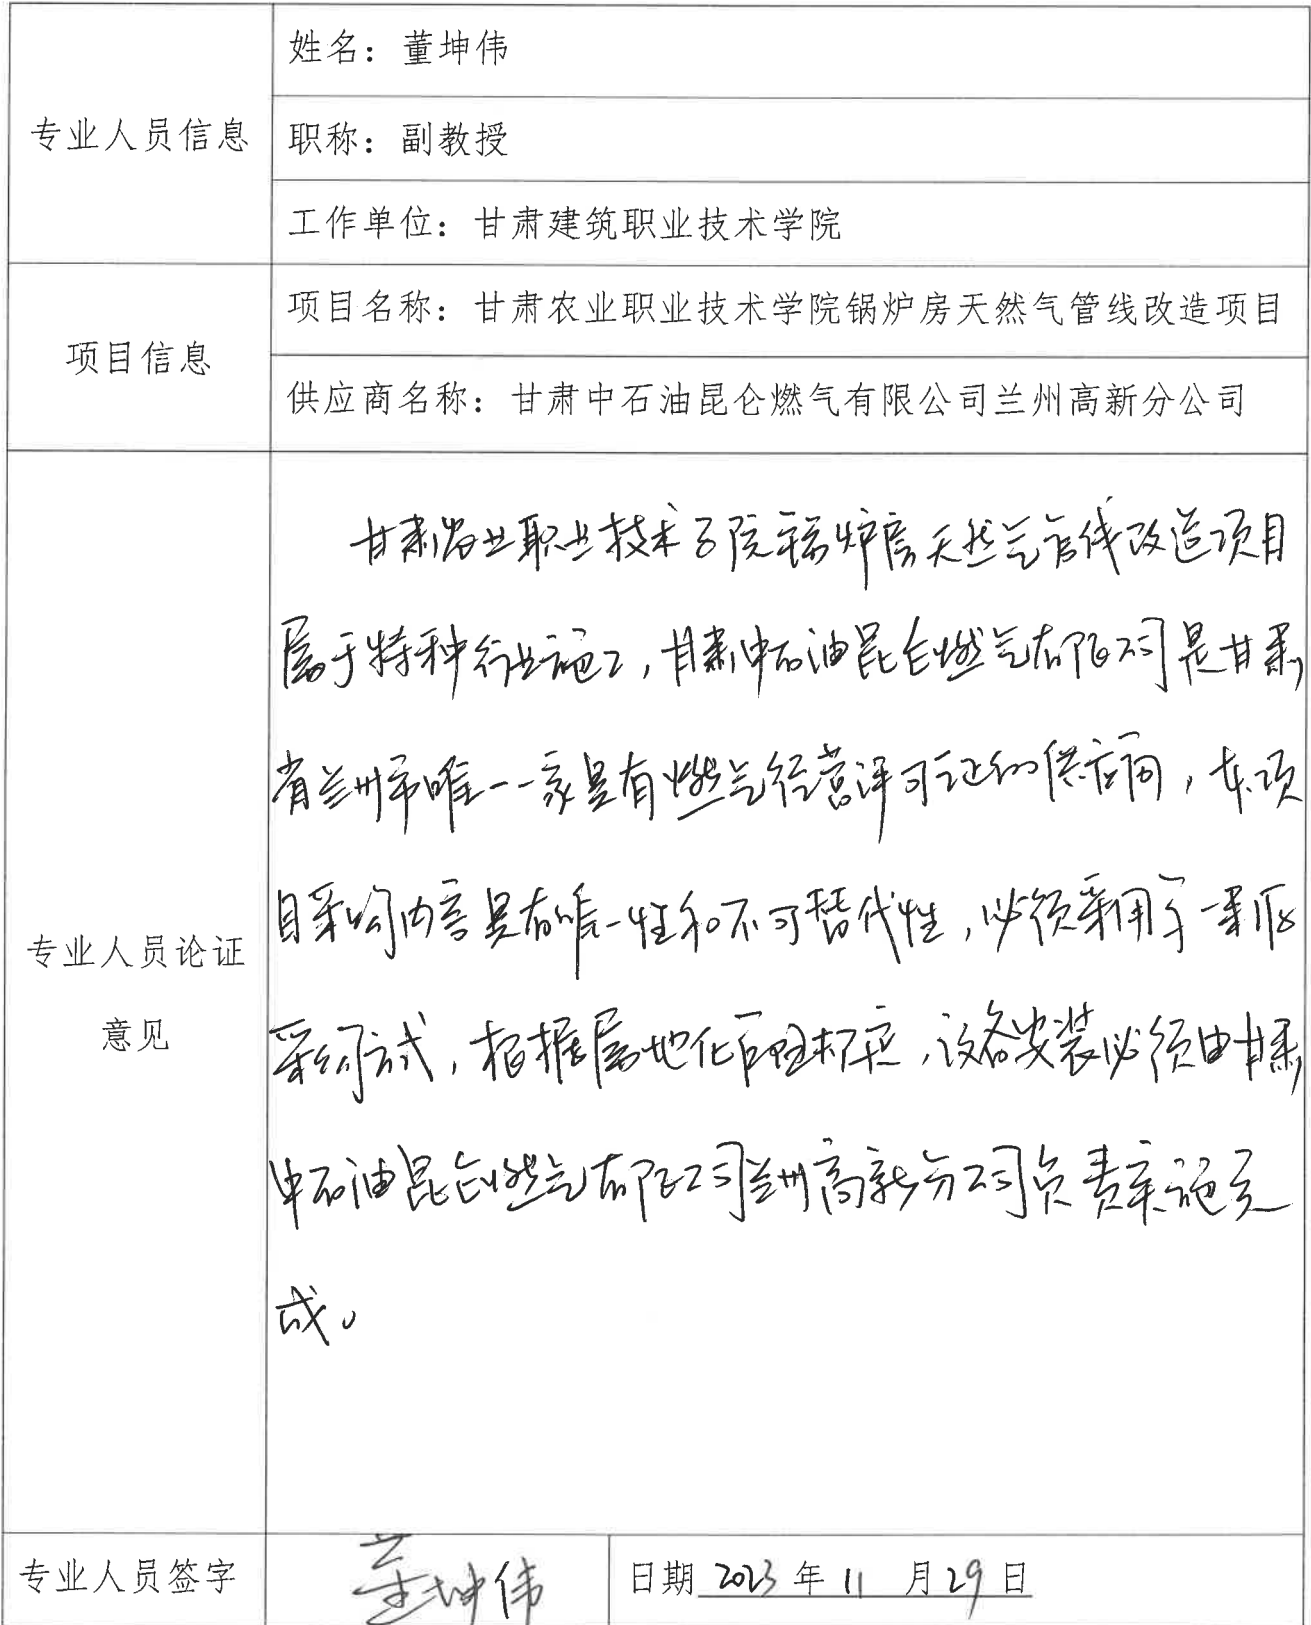 专业人员信息
姓名：董坤伟
职称：副教授
工作单位：甘肃建筑职业技术学院
项目信息
项目名称：甘肃农业职业技术学院锅炉房天然气管线改造项目
供应商名称：甘肃中石油昆仑燃气有限公司兰州高新分公司
专业人员论证
意见
甘肃农业职业技术学院锅炉房天然气管线改造项目
属于特种行业施工，甘肃中石油昆仑燃气有限公司是甘肃
省兰州市唯一一家具有燃气经营许可证的供应商，本项
目采购内容具有唯一性和不可替代性，必须采用单一来源
采购方式，根据属地化管理标准，设备安装必须由甘肃
中石油昆仑燃气有限公司兰州高新分公司负责实施完
成。
专业人员签字
董坤伟
日期 2023 年 11 月 29 日